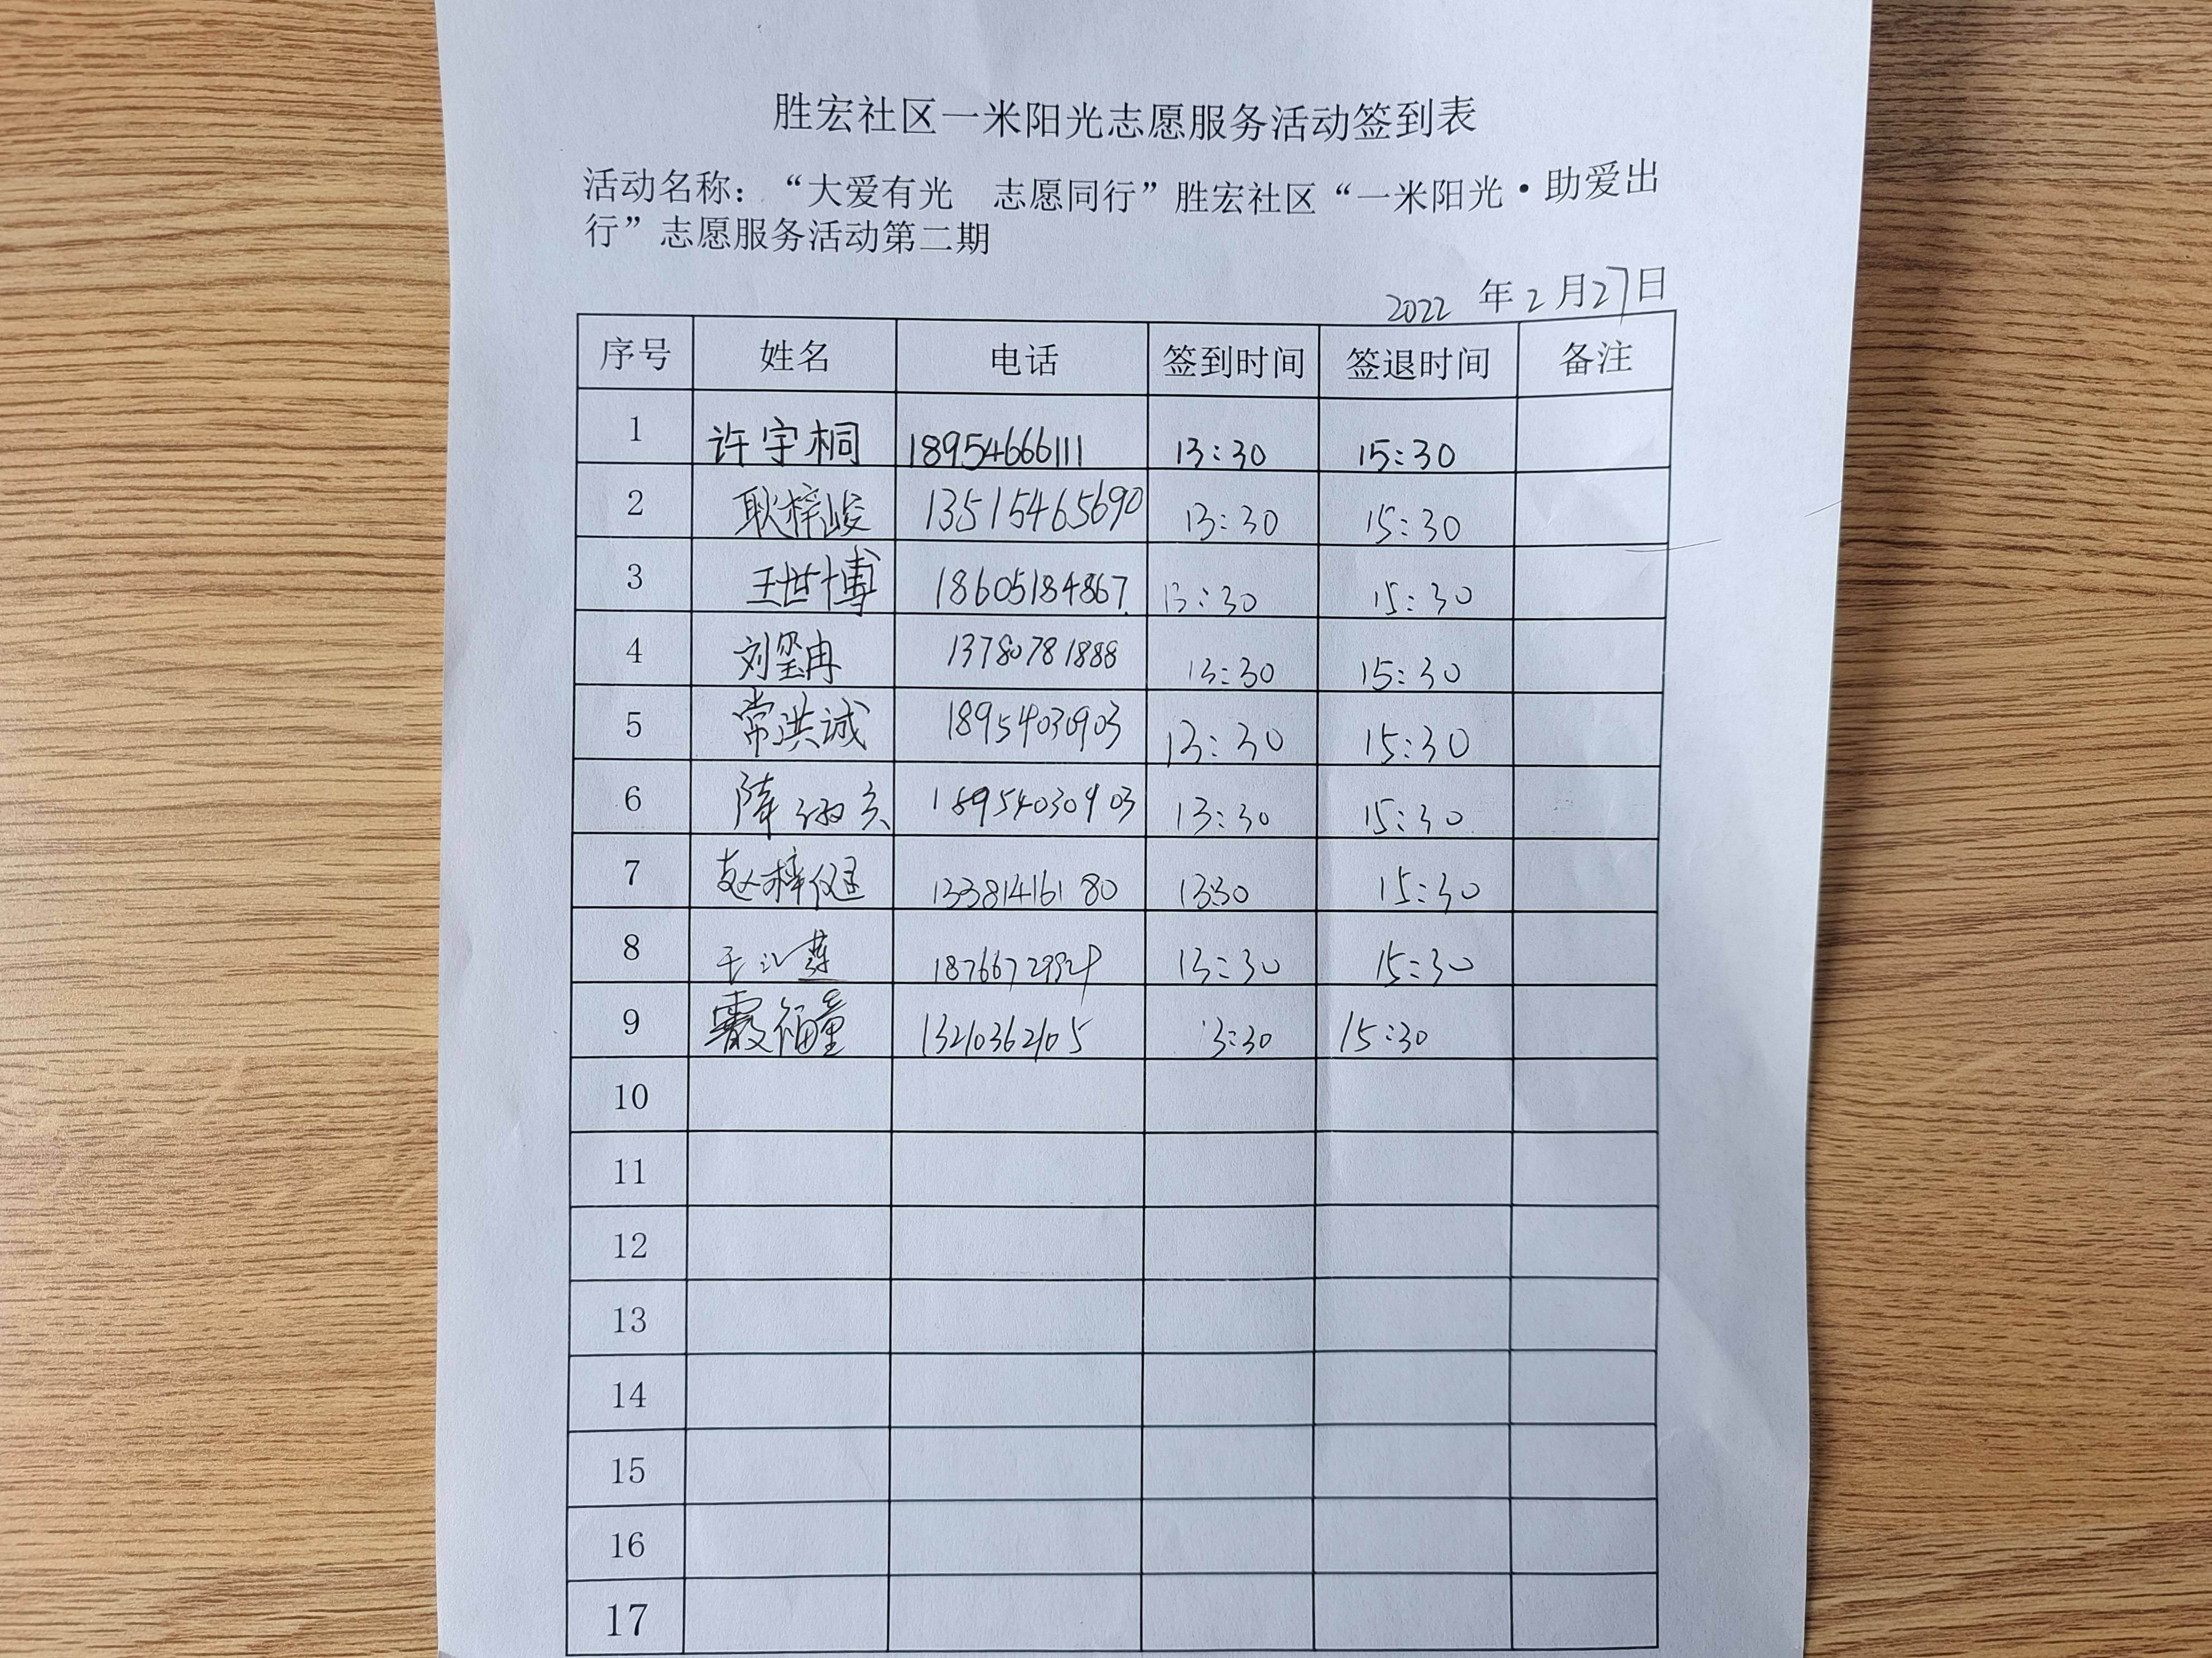 胜宏社区一米阳光志愿服务活动签到表
活动名称：“大爱有光　志愿同行”胜宏社区“一米阳光·助爱出
行”志愿服务活动第二期
2022 年 2 月 27 日
序号 姓名 电话 签到时间 签退时间 备注
1 许宇桐 18954666111 13:30 15:30
2 耿梓峻 13515465690 13:30 15:30
3 王世博 18605184867. 13:30 15:30
4 刘玺冉 13780781888 13:30 15:30
5 常洪诚 18954030903 13:30 15:30
6 18954030903 13:30 15:30
7 13381416180 1330 15:30
8 13:30 15:30
9 福童 13210362105 13:30 15:30
10
11
12
13
14
15
16
17